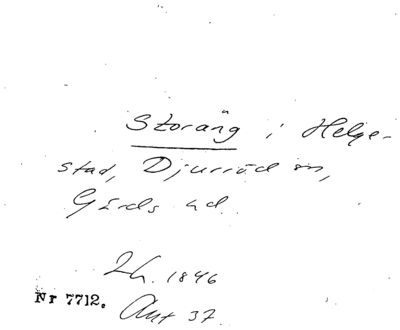 Storäng i Helge-
stad, Djurröd sn,
Gärds hd.
Lh. 1846
Nr 7712. Ant 37